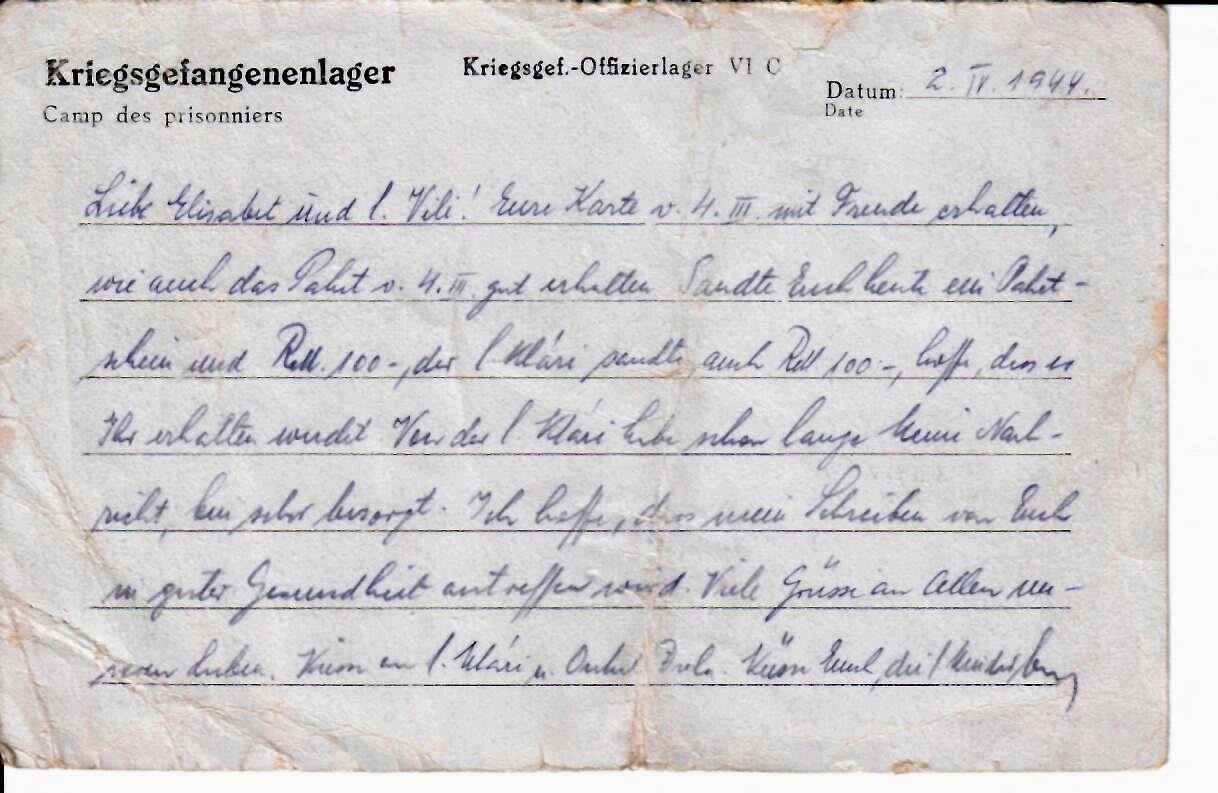 Kriegsgefangenenlager
Camp des prisonniers
Kriegsgef.-Offizierlager VI C
Datum: 2. IV. 1944.
Date
Liebe Elisabet und l. Vili! Eure Karte v. 4. III. mit Freude erhalten,
wie auch das Paket v. 4. III. gut erhalten Sandte Euch heute ein Paket-
schein und RM. 100-, der l. Klári sandte auch RM 100-, hoffe, dass es
Ihr erhalten werdet. Von der l. Klári habe schon lange keine Nach-
richt, bin sehr besorgt. Ich hoffe, dass mein Schreiben von Euch
in guter Gesundheit antreffen wird. Viele Grüsse an Allen un-
seren lieben. Küsse an l. Klári u. Onkel Küsse Euch, die l Kinder,